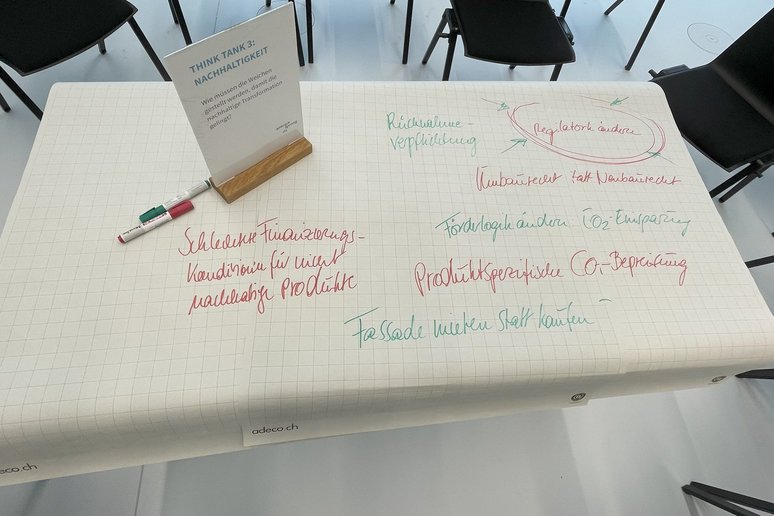 THINK TANK 3:
NACHHALTIGKEIT
Wie müssen die Weichen
gestellt werden, damit die
nachhaltige Transformation
gelingt?
Rücknahme-
verpflichtung
Regulatorik ändern
Umbaurecht statt Neubaurecht
Förderlogik ändern CO₂-Einsparung
Produktspezifische CO₂-Bepreisung
Fassade mieten statt kaufen
Schlechte Finanzierungs-
Konditionen für nicht
nachhaltige Produkte
adeco.ch
eco.ch